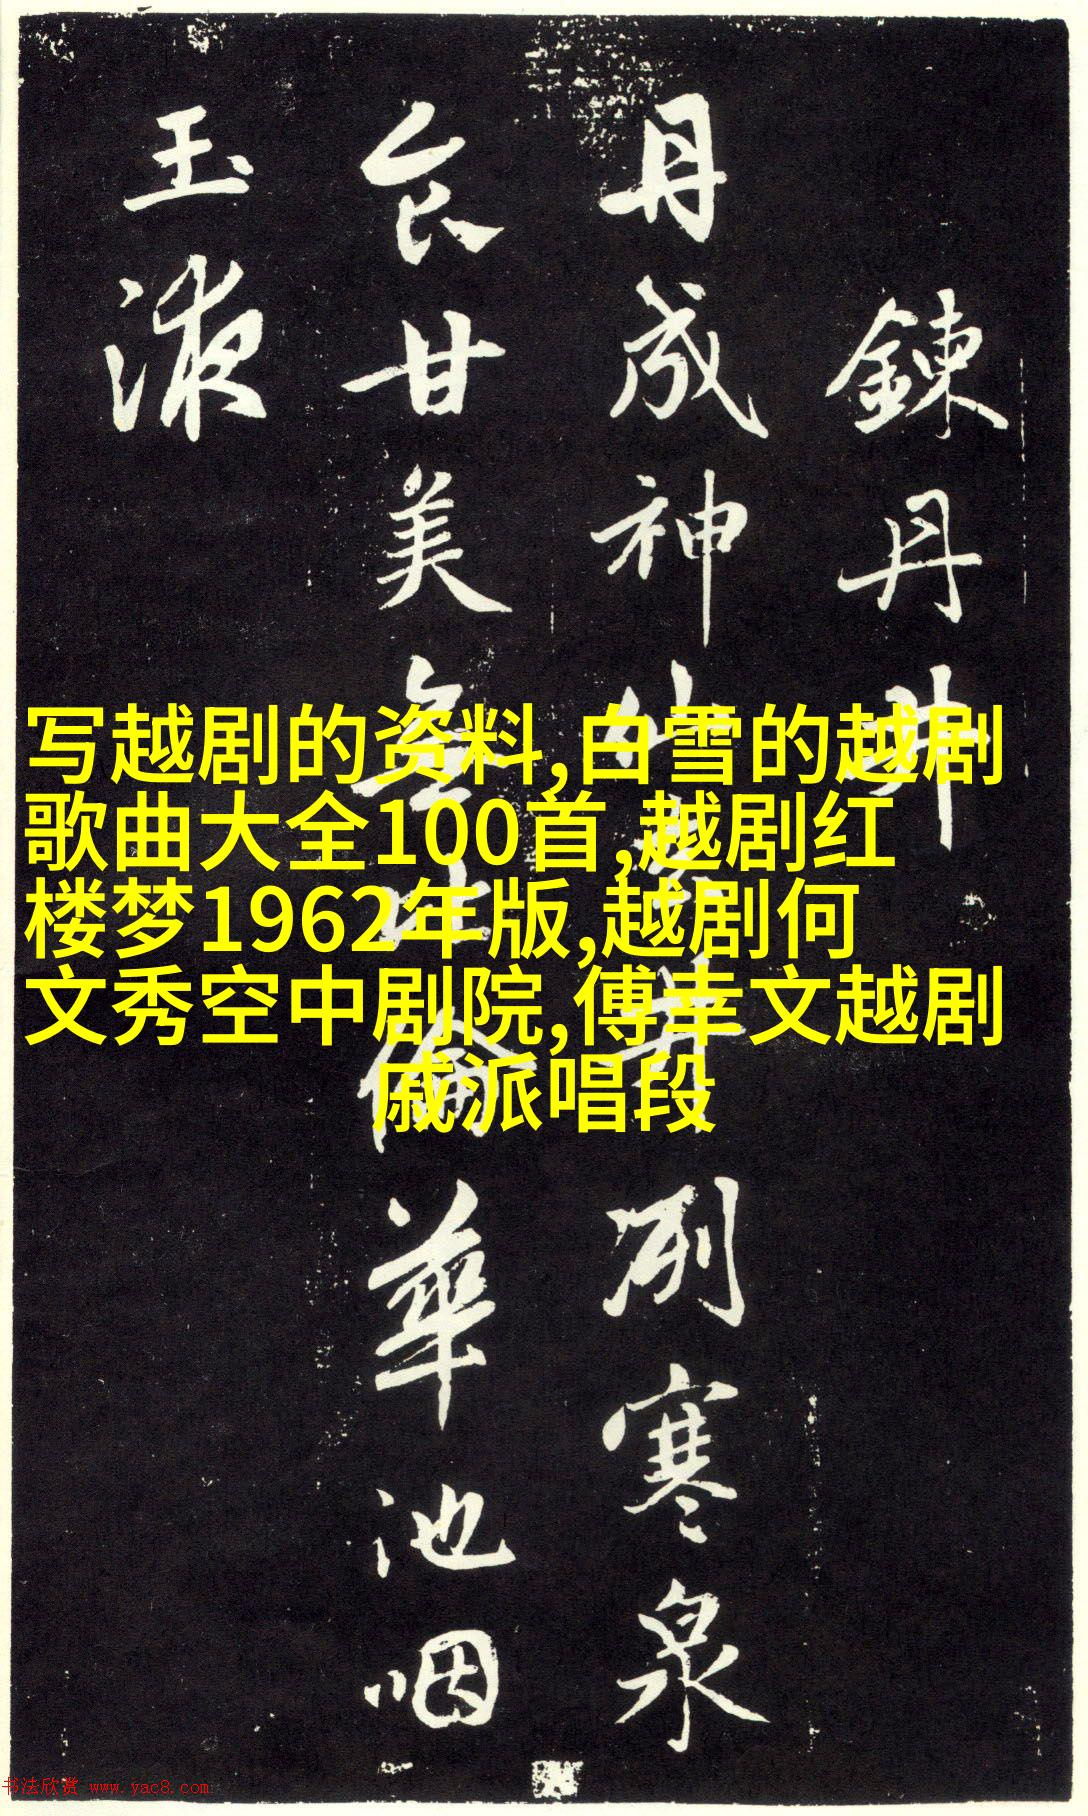 鍊丹井
丹成神仙井冽寒泉
食甘美無比倫華池咽
玉液
写越剧的资料,白雪的越剧
歌曲大全100首,越剧红
楼梦1962年版,越剧何
文秀空中剧院,傅幸文越剧
戚派唱段
书法欣赏 www.yac8.com